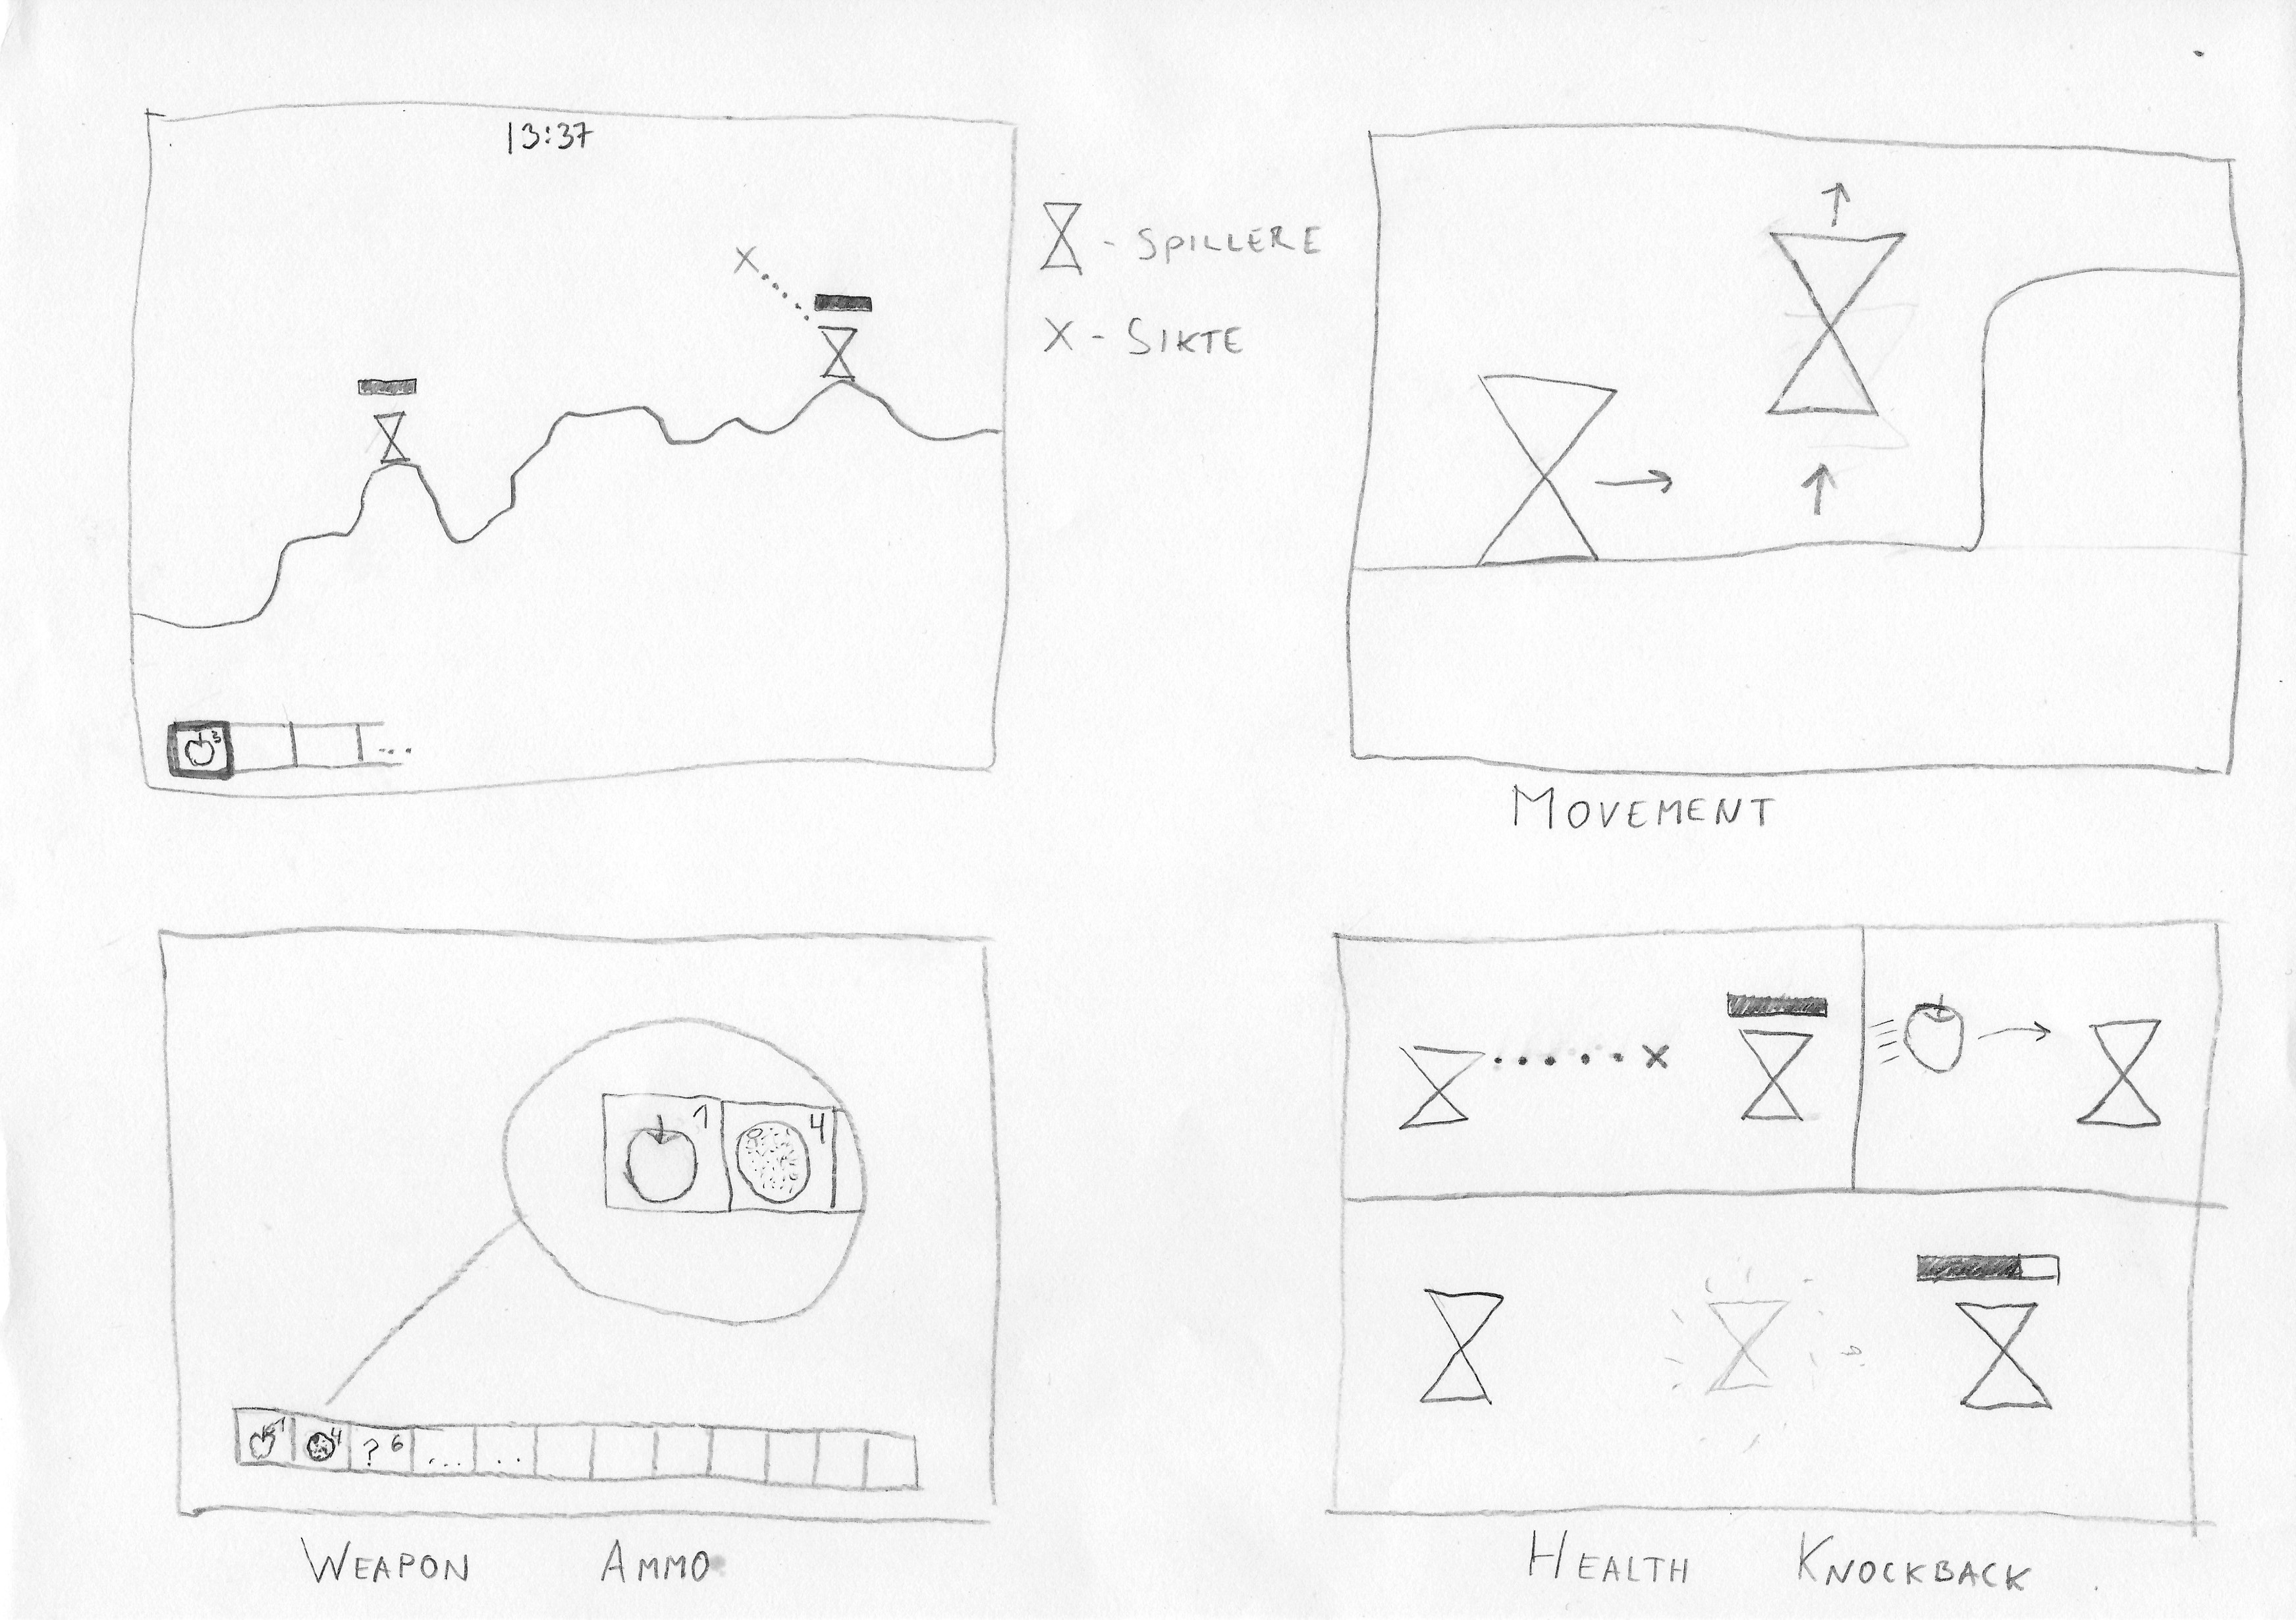 13:37
- SPILLERE
X - SIKTE
X
3
MOVEMENT
1 4
1 4 ? 6 ... ..
WEAPON AMMO
X
HEALTH KNOCKBACK